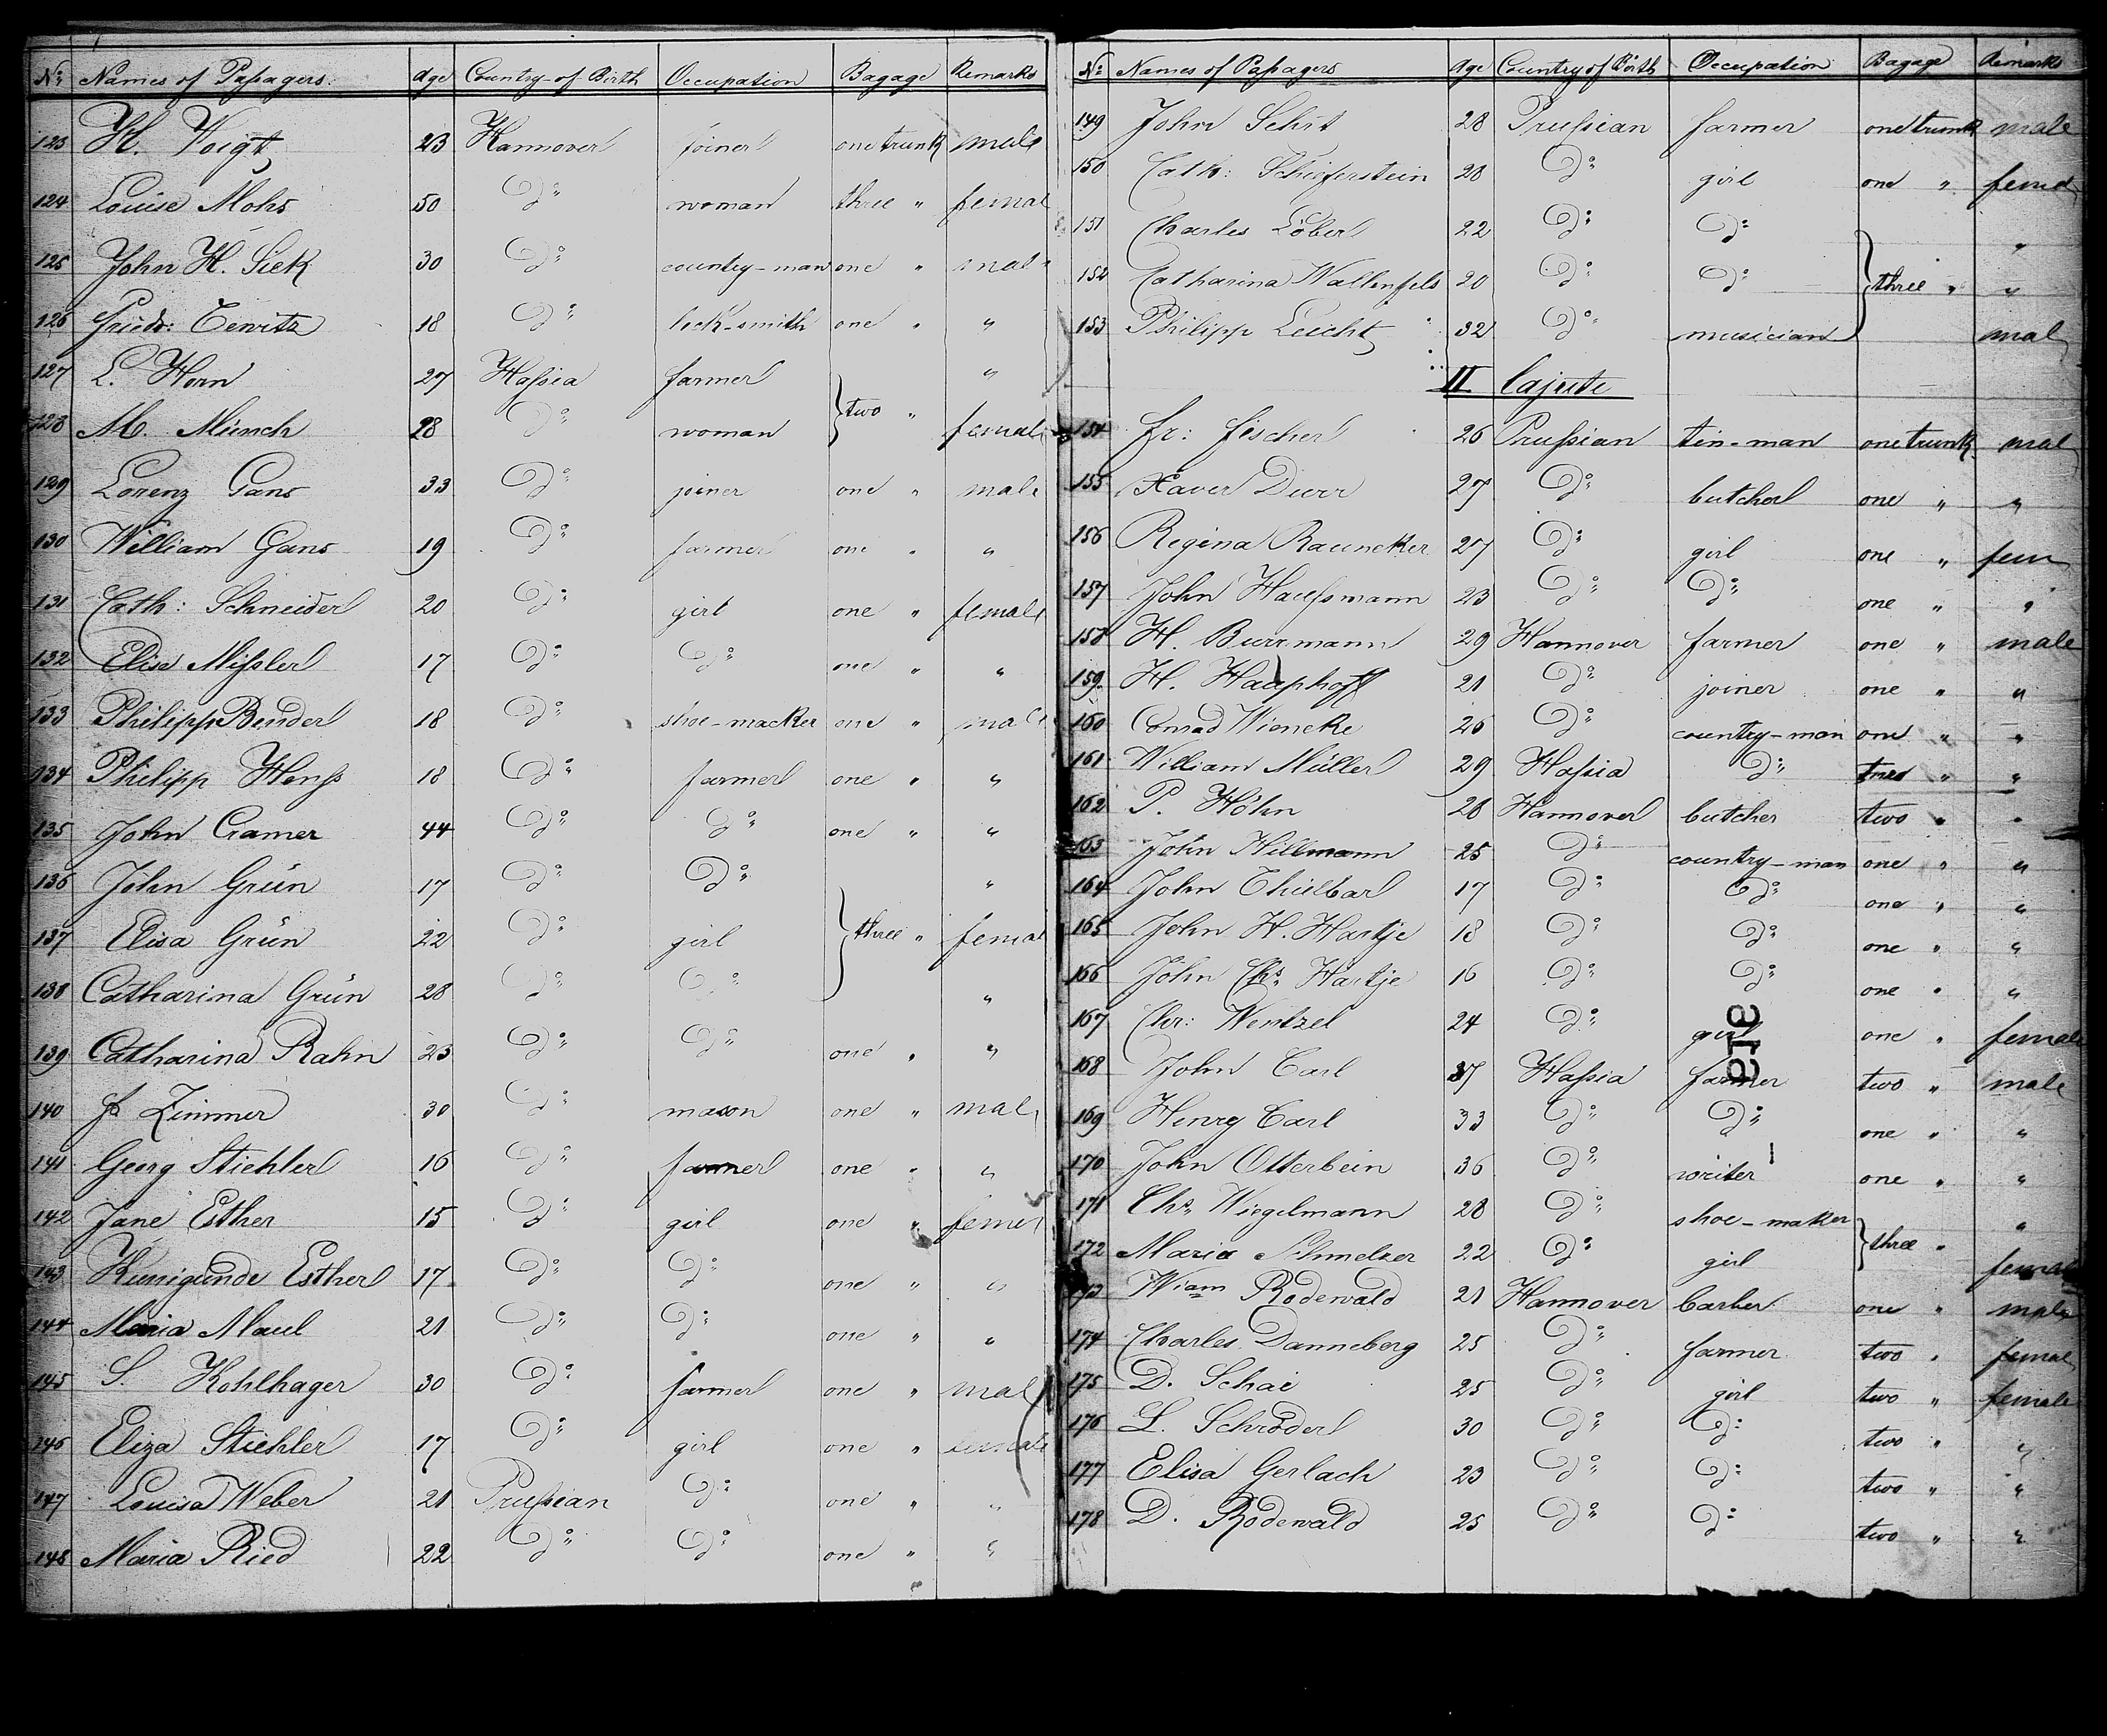 No: Names of Passagers. Age Country of Birth Occupation Bagage Remarks
123 H. Voigt 23 Hannover joiner one trunk male
124 Louise Mohs 50 Do: woman three " femal
125 John H. Siek 30 Do: country-man one " male
126 Friedr: Tewitz 18 Do: lock-smith one " "
127 L. Horn 27 Hassia farmer "
two "
128 M. Münch 28 Do: woman female
129 Lorenz Gans 33 Do: joiner one " male
130 William Gans 19 Do: farmer one " "
131 Cath: Schneider 20 Do: girl one " female
132 Elisa Missler 17 Do: Do: one " "
133 Philipp Bender 18 Do: shoe-macker one " male
134 Philipp Henss 18 Do: farmer one " "
135 John Cramer 44 Do: Do: one " "
136 John Grün 17 Do: Do: "
137 Elisa Grün 22 Do: girl three " femal
138 Catharina Grün 28 Do: Do: "
139 Catharina Rahn 23 Do: Do: one " "
140 Zimmer 30 Do: mason one " male
141 Georg Stiehler 16 Do: farmer one " "
142 Jane Esther 15 Do: girl one " femal
143 Kunigunde Esther 17 Do: Do: one " "
144 Maria Maul 21 Do: Do: one " "
145 S. Kohlhager 30 Do: farmer one " male
146 Eliza Stiehler 17 Do: girl one " female
147 Louisa Weber 21 Prussian Do: one " "
148 Maria Ried 22 Do: Do: one " "
No: Names of Passagers Age Country of Birth Occupation Bagage Remarks
149 John Schit 28 Prussian farmer one trunk male
150 Cath: Schieferstein 28 Do: girl one " femal
151 Charles Löber 22 Do: Do: "
152 Catharina Wallenfels 20 Do: Do: three " "
153 Philipp Leicht 32 Do: musician mal
II Cajute
154 Fr: Fischer 26 Prussian tin-man one trunk mal
155 Xaver Durr 27 Do: butcher one " "
156 Regina Rauncker 27 Do: girl one " fem
157 John Haussmann 23 Do: Do: one " "
158 H. Burrmann 29 Hannover farmer one " male
159. H. Hauphoff 21 Do: joiner one " "
160 Conrad Wioncke 26 Do: country-man one " "
161 William Müller 29 Hassia Do: two " "
162 P. Höhn 28 Hannover butcher two " "
163 John Hillmann 25 Do: country-man one " "
164 John Thielbar 17 Do: Do: one " "
165 John H. Hartje 18 Do: Do: one " "
166 John Chs. Hartje 16 Do: Do: one " "
167 Chr: Wentzel 24 Do: girl one " female
168 John Carl 37 Hassia farmer two " male
169 Henry Carl 33 Do: Do: one " "
170 John Otterbein 36 Do: writer one " "
171 Chs. Wiegelmann 28 Do: shoe-maker "
three "
172 Maria Schmelzer 22 Do: girl female
173 Wiam Rodewald 21 Hannover barber one " male
174 Charles Danneberg 25 Do: farmer two " femal
175 D. Schai 25 Do: girl two " female
176 L. Schröder 30 Do: Do: two " "
177 Elisa Gerlach 23 Do: Do: two " "
178 D. Rodewald 25 Do: Do: two " "